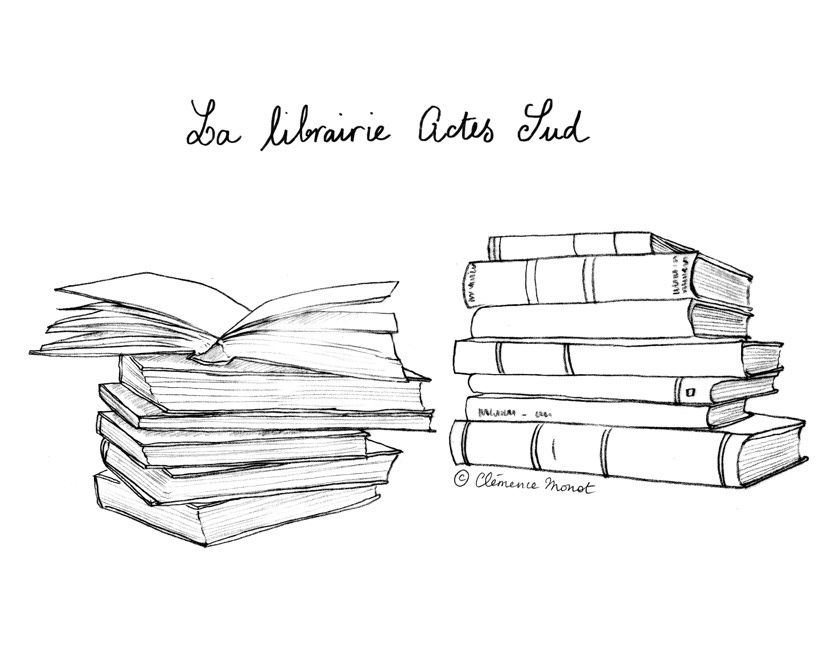 La librairie Actes Sud
© Clémence Monot